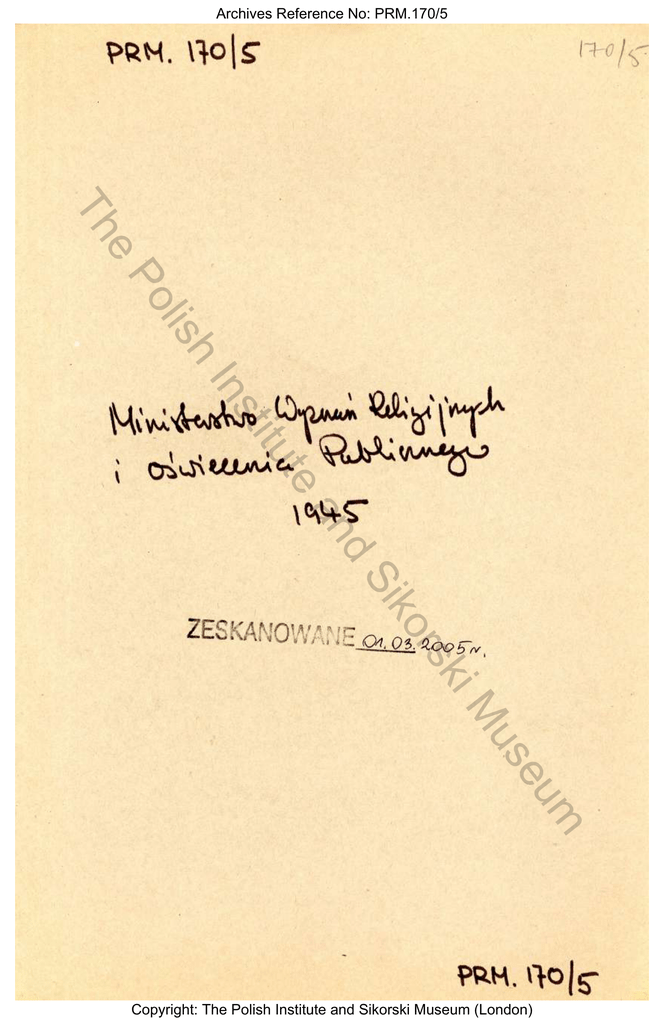 Archives Reference No: PRM.170/5
PRM. 170/5
170/5
Ministerstwo Wyznań Religijnych
i oświecenia Publicznego
1945
ZESKANOWANE 01.03.2005r.
The Polish Institute and Sikorski Museum
PRM. 170/5
Copyright: The Polish Institute and Sikorski Museum (London)